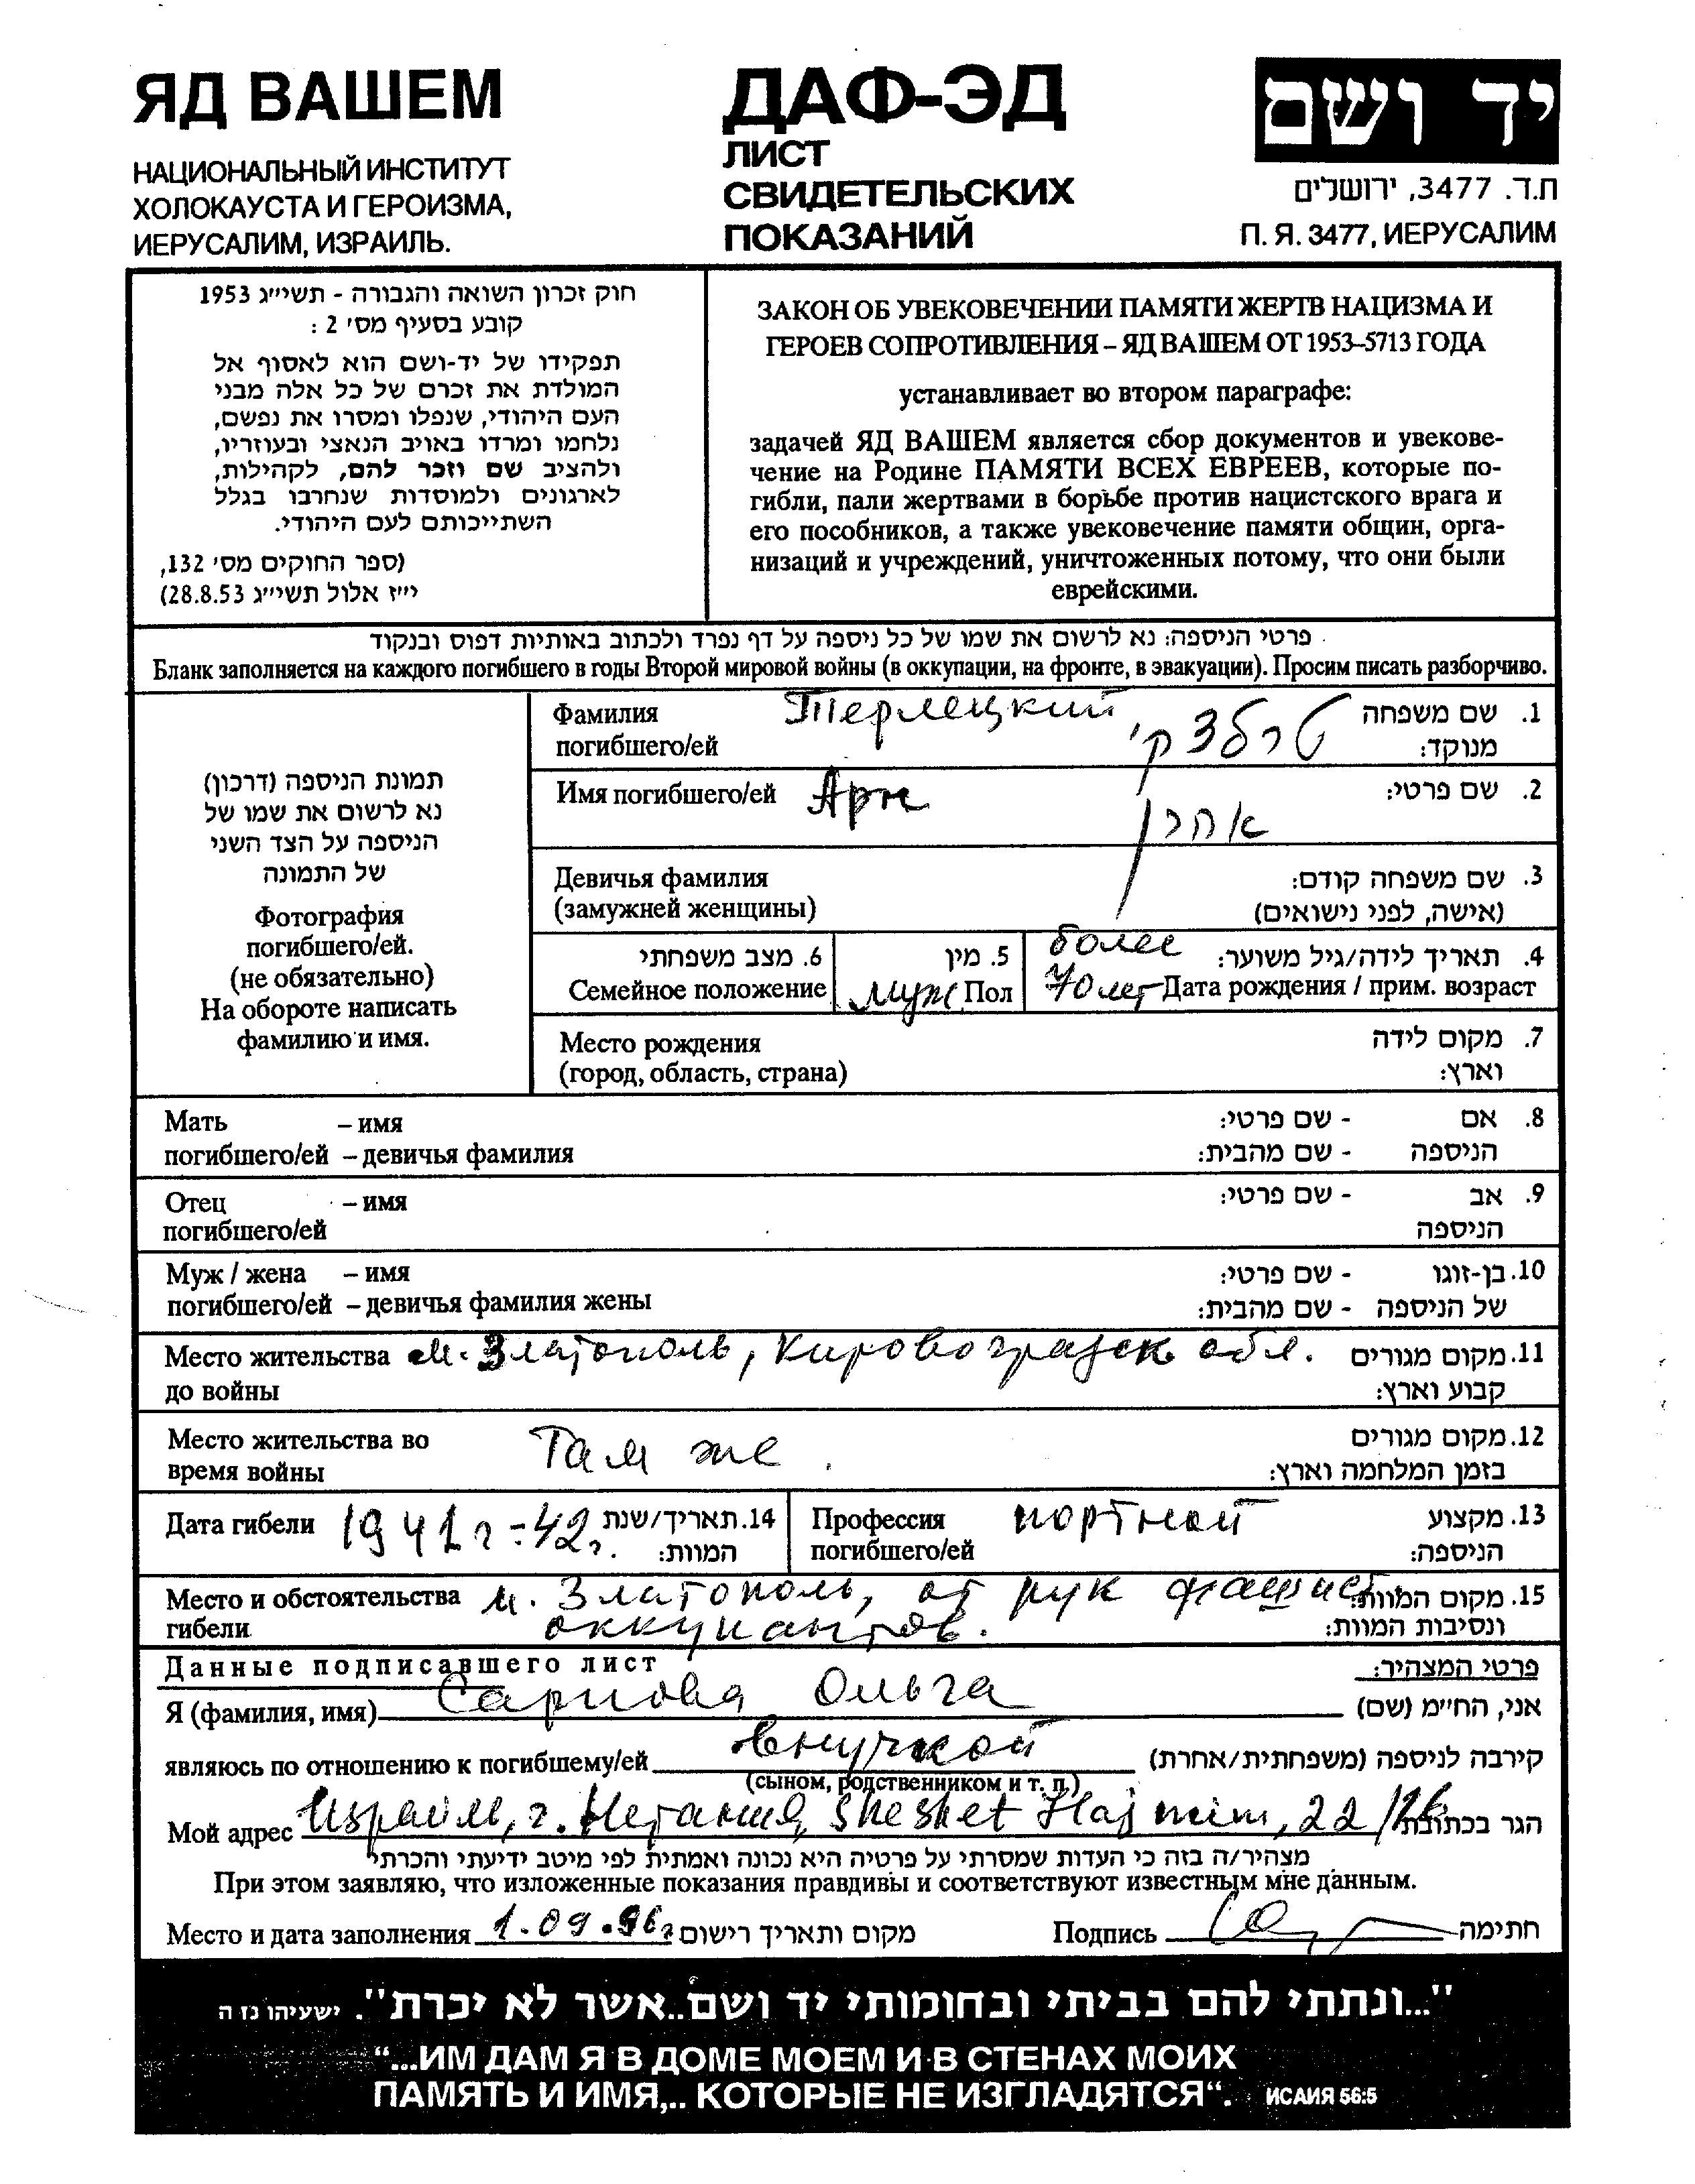 ЯД ВАШЕМ
НАЦИОНАЛЬНЫЙ ИНСТИТУТ
ХОЛОКАУСТА И ГЕРОИЗМА,
ИЕРУСАЛИМ, ИЗРАИЛЬ.
ДАФ-ЭД
ЛИСТ
СВИДЕТЕЛЬСКИХ
ПОКАЗАНИЙ
יד ושם
ת.ד. 3477, ירושלים
П. Я. 3477, ИЕРУСАЛИМ
חוק זכרון השואה והגבורה - תשי״ג 1953
קובע בסעיף מס׳ 2 :
תפקידו של יד-ושם הוא לאסוף אל
המולדת את זכרם של כל אלה מבני
העם היהודי, שנפלו ומסרו את נפשם,
נלחמו ומרדו באויב הנאצי ובעוזריו,
ולהציב שם וזכר להם, לקהילות,
לארגונים ולמוסדות שנחרבו בגלל
השתייכותם לעם היהודי.
(ספר החוקים מס׳ 132,
י״ז אלול תשי״ג 28.8.53)
ЗАКОН ОБ УВЕКОВЕЧЕНИИ ПАМЯТИ ЖЕРТВ НАЦИЗМА И
ГЕРОЕВ СОПРОТИВЛЕНИЯ – ЯД ВАШЕМ ОТ 1953–5713 ГОДА
устанавливает во втором параграфе:
задачей ЯД ВАШЕМ является сбор документов и увекове-
чение на Родине ПАМЯТИ ВСЕХ ЕВРЕЕВ, которые по-
гибли, пали жертвами в борьбе против нацистского врага и
его пособников, а также увековечение памяти общин, орга-
низаций и учреждений, уничтоженных потому, что они были
еврейскими.
פרטי הניספה: נא לרשום את שמו של כל ניספה על דף נפרד ולכתוב באותיות דפוס ובנקוד
Бланк заполняется на каждого погибшего в годы Второй мировой войны (в оккупации, на фронте, в эвакуации). Просим писать разборчиво.
תמונת הניספה (דרכון)
נא לרשום את שמו של
הניספה על הצד השני
של התמונה
Фотография
погибшего/ей.
(не обязательно)
На обороте написать
фамилию и имя.
Фамилия Терлецкий 1. שם משפחה
погибшего/ей טרלצקי מנוקד:
Имя погибшего/ей Арн 2. שם פרטי:
אהרן
Девичья фамилия 3. שם משפחה קודם:
(замужней женщины) (אישה, לפני נישואים)
6. מצב משפחתי 5. מין более 4. תאריך לידה/גיל משוער:
Семейное положение муж Пол 70 лет Дата рождения / прим. возраст
Место рождения 7. מקום לידה
(город, область, страна) וארץ:
Мать – имя - שם פרטי: 8. אם
погибшего/ей – девичья фамилия - שם מהבית: הניספה
Отец – имя - שם פרטי: 9. אב
погибшего/ей הניספה
Муж / жена – имя - שם פרטי: 10. בן-זוגו
погибшего/ей – девичья фамилия жены - שם מהבית: של הניספה
Место жительства м. Златополь, Кировоградск обл. 11. מקום מגורים
до войны קבוע וארץ:
Место жительства во Там же. 12. מקום מגורים
время войны בזמן המלחמה וארץ:
Дата гибели 1941г-42г. 14. תאריך/שנת המוות:
Профессия портной 13. מקצוע
погибшего/ей הניספה:
Место и обстоятельства м. Златополь, от рук фашист 15. מקום המוות
гибели оккупантов. ונסיבות המוות:
Данные подписавшего лист פרטי המצהיר:
Я (фамилия, имя) Ольга אני, החי״מ (שם)
являюсь по отношению к погибшему/ей внучкой קירבה לניספה (משפחתית/אחרת)
(сыном, родственником и т. п.)
Мой адрес Израиль, г. Нетания, Sheshet Hajmim, 22/ הגר בכתובת
מצהיר/ה בזה כי העדות שמסרתי על פרטיה היא נכונה ואמתית לפי מיטב ידיעתי והכרתי
При этом заявляю, что изложенные показания правдивы и соответствуют известным мне данным.
Место и дата заполнения 1.09.96г מקום ותאריך רישום Подпись חתימה
"...ונתתי להם בביתי ובחומותי יד ושם..אשר לא יכרת". ישעיהו נז ה
“...ИМ ДАМ Я В ДОМЕ МОЕМ И В СТЕНАХ МОИХ
ПАМЯТЬ И ИМЯ,.. КОТОРЫЕ НЕ ИЗГЛАДЯТСЯ“. ИСАИЯ 56:5